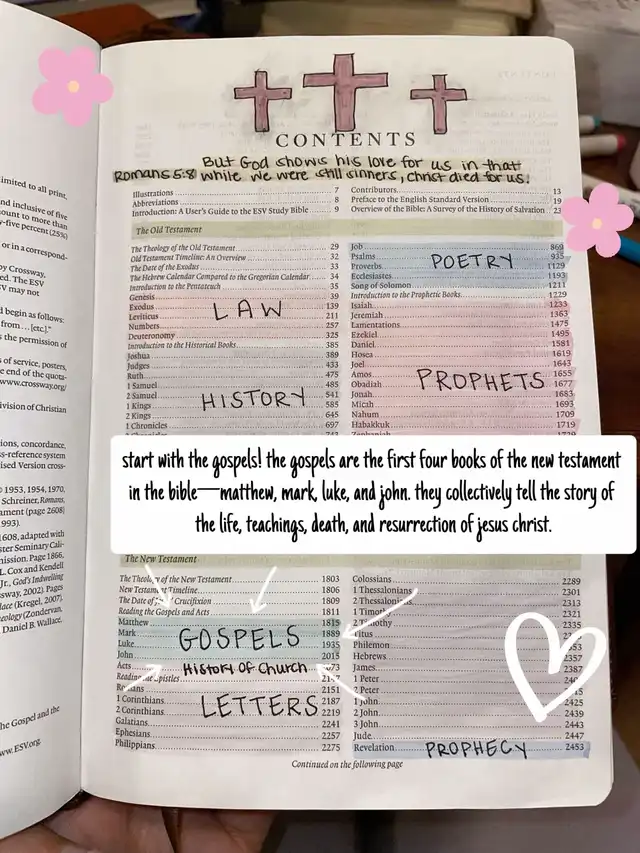 imited to all print,
and inclusive of five
ount to more than
y-five percent (25%)
or in a correspond-
by Crossway,
ed. The ESV
SV may not
d begin as follows:
from … [etc.]."
s the permission of
s of service, posters,
e end of the quota-
www.crossway.org/
ivision of Christian
ions, concordance,
s-reference system
ised Version cross-
© 1953, 1954, 1970,
Schreiner, Romans,
ament (page 2608)
993).
1608, adapted with
ter Seminary Cali-
mission. Page 1866,
L. Cox and Kendell
Jr., God's Indwelling
ssway, 2002). Pages
lace (Kregel, 2007).
eology (Zondervan,
Daniel B. Wallace.
he Gospel and the
ww.ESV.org.
CONTENTS
But God shows his love for us in that
Romans 5:8 while we were still sinners, christ died for us.
Illustrations 7
Abbreviations 8
Introduction: A User's Guide to the ESV Study Bible 9
Contributors 13
Preface to the English Standard Version 19
Overview of the Bible: A Survey of the History of Salvation 23
The Old Testament
The Theology of the Old Testament 29
Old Testament Timeline: An Overview 32
The Date of the Exodus 33
The Hebrew Calendar Compared to the Gregorian Calendar 34
Introduction to the Pentateuch 35
Genesis 39
Exodus 139
Leviticus 211
Numbers 257
Deuteronomy 325
LAW
Introduction to the Historical Books 385
Joshua 389
Judges 433
Ruth 475
1 Samuel 485
2 Samuel 541
1 Kings 585
2 Kings 645
1 Chronicles 697
HISTORY
Job 869
Psalms 935
Proverbs 1129
Ecclesiastes 1193
Song of Solomon 1211
POETRY
Introduction to the Prophetic Books 1229
Isaiah 1233
Jeremiah 1363
Lamentations 1475
Ezekiel 1495
Daniel 1581
Hosea 1619
Joel 1643
Amos 1655
Obadiah 1677
Jonah 1683
Micah 1693
Nahum 1709
Habakkuk 1719
PROPHETS
start with the gospels! the gospels are the first four books of the new testament
in the bible—matthew, mark, luke, and john. they collectively tell the story of
the life, teachings, death, and resurrection of jesus christ.
The New Testament
The Theology of the New Testament 1803
New Testament Timeline 1806
The Date of Crucifixion 1809
Reading the Gospels and Acts 1811
Matthew 1815
Mark 1889
Luke 1935
John 2015
GOSPELS
Acts
History of Church
Reading the Epistles
Romans 2151
1 Corinthians 2187
2 Corinthians 2219
Galatians 2241
Ephesians 2257
Philippians 2275
LETTERS
Colossians 2289
1 Thessalonians 2301
2 Thessalonians 2313
1 Timothy 2321
2 Timothy 2335
Titus
Philemon
Hebrews 2357
James 2387
1 Peter
2 Peter
1 John 2425
2 John 2439
3 John 2443
Jude 2447
Revelation 2453
PROPHECY
Continued on the following page